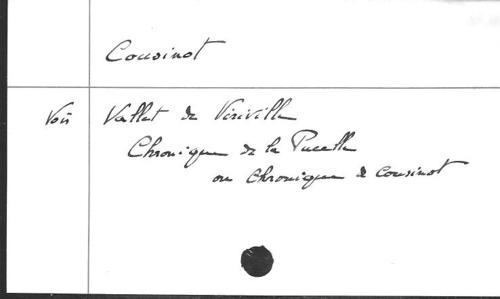 Cousinot
Voir Vallet de Viriville
Chronique de la Pucelle
ou chronique de cousinot